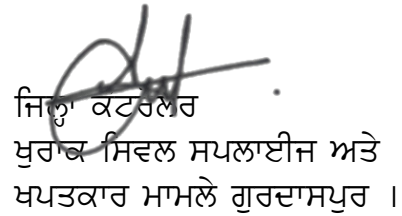 ਜਿਲ੍ਹਾ ਕੰਟਰੋਲਰ
ਖੁਰਾਕ ਸਿਵਲ ਸਪਲਾਈਜ ਅਤੇ
ਖਪਤਕਾਰ ਮਾਮਲੇ ਗੁਰਦਾਸਪੁਰ ।